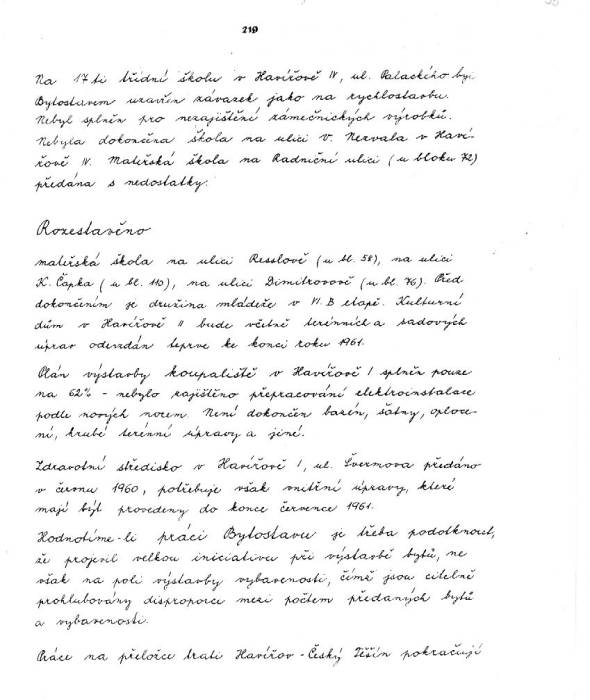 219
Na 17 ti třídní školu v Havířově IV, ul. Palackého byl
Bytostavem uzavřen závazek jako na rychlostavbu.
Nebyl splněn pro nezajištění zámečnických výrobků.
Nebyla dokončena škola na ulici V. Nezvala v Haví-
řově IV. Mateřská škola na Radniční ulici (u bloku 72)
předána s nedostatky.
Rozestavěno
mateřská škola na ulici Resslově (u bl. 58), na ulici
K. Čapka (u bl. 110), na ulici Dimitrovově (u bl. 76). Před
dokončením je družina mládeže v VI. B etapě. Kulturní
dům v Havířově II bude včetně terénních a sadových
úprav odevzdán teprve ke konci roku 1961.
Plán výstavby koupaliště v Havířově I splněn pouze
na 62% - nebylo zajištěno přepracování elektroinstalace
podle nových norem. Není dokončen bazén, šatny, oploce-
ní, hrubé terénní úpravy a jiné.
Zdravotní středisko v Havířově I, ul. Švermova předáno
v červnu 1960, potřebuje však vnitřní úpravy, které
mají být provedeny do konce července 1961.
Hodnotíme-li práci Bytostavu je třeba podotknout,
že projevil velkou iniciativu při výstavbě bytů, ne
však na poli výstavby vybavenosti, čímž jsou citelně
prohlubovány disproporce mezi počtem předaných bytů
a vybaveností.
Práce na přeložce trati Havířov - Český Těšín pokračují